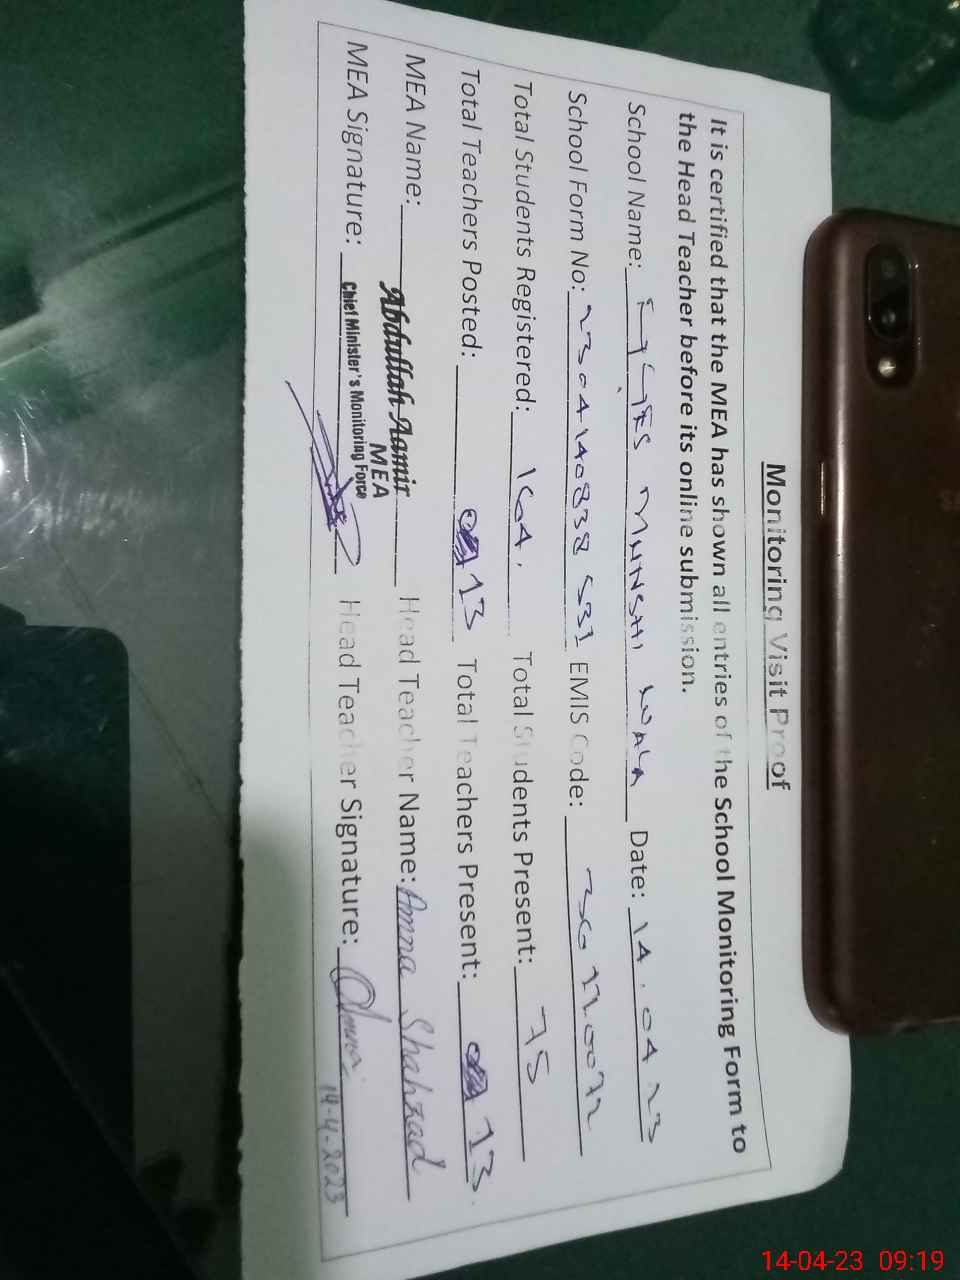 Monitoring Visit Proof
It is certified that the MEA has shown all entries of the School Monitoring Form to
the Head Teacher before its online submission.
School Name: MUNSHI WALA Date: 14.04.23
School Form No: EMIS Code:
Total Students Registered: 164, Total Students Present: 75
Total Teachers Posted: 13 Total Teachers Present: 13
MEA Name: Abdullah Aamir Head Teacher Name: Amna Shahzad
MEA
MEA Signature: Chief Minister's Monitoring Force Head Teacher Signature:
14-4-2023
14-04-23 09:19